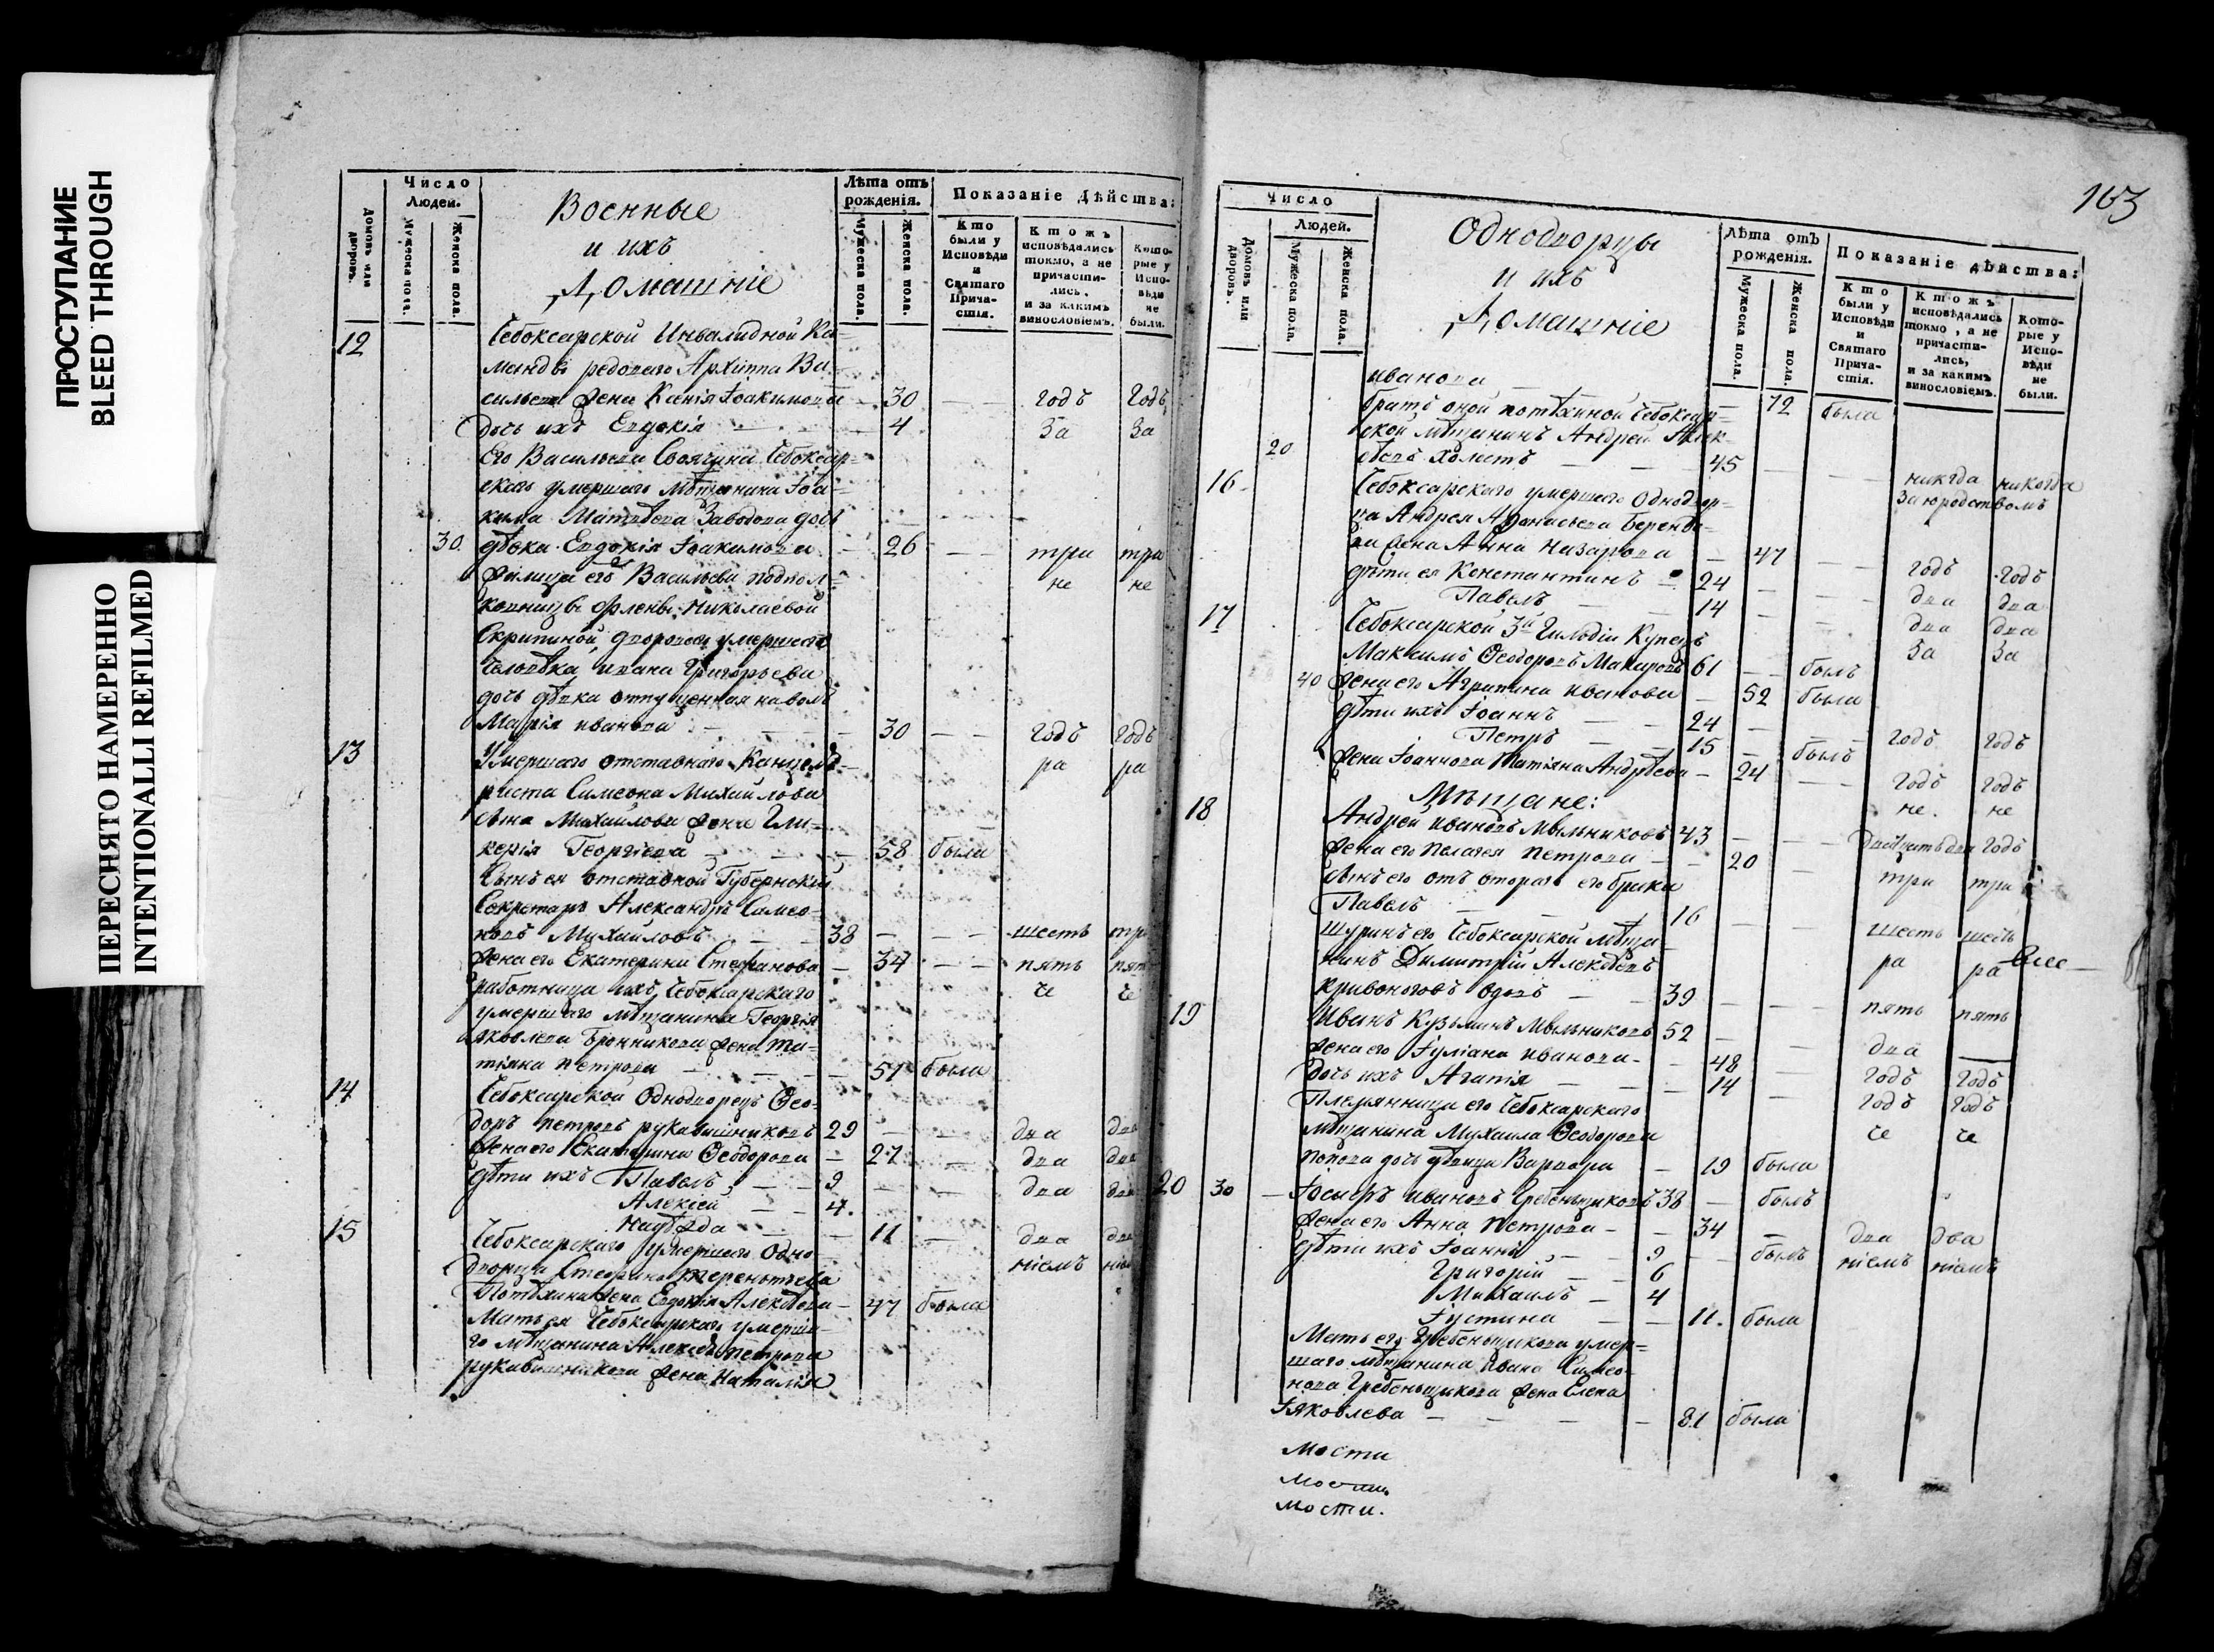 ПРОСТУПАНИЕ
BLEED THROUGH
ПЕРЕСНЯТО НАМЕРЕННО
INTENTIONALLI REFILMED
Число Людей.
Домовъ или дворовъ.
Мужеска пола.
Женска пола.
Военные
и ихъ
Домашніе
Лѣта отъ рожденія.
Мужеска пола.
Женска пола.
Показаніе Дѣйства:
Кто были у Исповѣди и Святаго Прича-стія.
Ктожъ исповѣдались токмо, а не причасти-лись, и за какимъ винословіемъ.
Кото-рые у Испо-вѣди не были.
12 Чебоксарской Инвалидной Ко=
манды редоваго Архиппа Ва=
сильева жена Ксенія Іоакимова — 30 — годъ годъ
дочь ихъ Евдокія — 4 за за
Его Васильева Своячина Чебоксар=
скаго умершаго Мѣщанина Іоа=
кима Матвѣева Заводова дочь
30. дѣвка Евдокія Іоакимова — 26 — три три
жилица его Васильева подпол= не не
ковницы Николаевой
Скрипиной, двороваго умершаго
Человѣка Ивана Григорьева
дочь дѣвка отпущенная наволю
Марія Иванова — 30 — годъ годъ
13 Умершаго отставнаго Канцеля= ра ра
риста Симеона Михайлова
сына Михайлова жена Гли=
керія Георгіева — 58 была
Сынъ ея отставной Губернскій
Секретарь Александръ Симео=
новъ Михайловъ — 38 — шесть три
жена его Екатерина Стефанова — 34 — пять пять
работница ихъ Чебоксарскаго че че
умершаго мѣщанина Георгія
Яковлева Бронникова жена Та=
тіяна Петрова — 51 была
14 Чебоксарской Однодворецъ Ѳео=
доръ Петровъ рукавишниковъ 29 — два два
жена его Екатерина Ѳеодорова — 27 — два два
дѣти ихъ Павелъ — 9 — два два
Алексій — 4.
Надѣжда — 11 — два два
15 Чебоксарскаго умершаго Одно= ніемъ
дворца Стефана Терентьева
Потѣхина жена Евдокія Алексѣева — 47 была
Мать ея Чебоксарскаго умерша=
го мѣщанина Алексѣя Петрова
рукавишникова жена Наталія
163
Число Людей.
Домовъ или дворовъ.
Мужеска пола.
Женска пола.
Однодворцы
и ихъ
Домашніе
Лѣта отъ рожденія.
Мужеска пола.
Женска пола.
Показаніе дѣйства:
Кто были у Исповѣди и Святаго Прича-стія.
Ктожъ исповѣдались токмо, а не причасти-лись, и за какимъ винословіемъ.
Кото-рые у Испо-вѣди не были.
Иванова — 72 была
братъ оной потѣхиной Чебоксар=
20 ской мѣщанинъ Андрей Алек=
сѣевъ холостъ — 45 — никогда никогда
16 Чебоксарскаго умершаго Однодвор= За юродствомъ
ца Андрея Аѳонасьева
жена Анна Назарова — 47 — годъ годъ
дѣти ея Константинъ 24 — два два
Павелъ — 14 — два два
17 Чебоксарской 3й Гильдіи Купецъ за за
Максимъ Ѳеодоровъ Макаровъ 61 — былъ
40 жена его Агрипина Иванова — 52 была
дѣти ихъ Іоаннъ — 24 — годъ годъ
Петръ — 15 — былъ
жена Іоаннова Татіяна Андрѣева — 24 — годъ годъ
Мѣщане: не. не
18 Андрей Ивановъ Мыльниковъ 43 — годъ
жена его Пелагея Петрова — 20 — три три
сынъ его отъ втораго его брака
Павелъ — 16 — шесть шесть
шуринъ его Чебоксарской мѣща= ра ра
нинъ Димитрій Алексѣевъ
кривоноговъ вдовъ — 39 — пять пять
19 Иванъ Кузьминъ Мыльниковъ 52 — два —
жена его Іуліана Иванова — 48 — годъ годъ
дочь ихъ Агапія — 14 — годъ годъ
Племянница его Чебоксарскаго че че
мѣщанина Михаила Ѳеодорова
попова дочь дѣвица Варвара — 19 была
20 30 — Іосифъ Ивановъ Гребеньщиковъ 38 — былъ
жена его Анна Петрова — 34 — два два
дѣти ихъ Іоаннъ — 9 — былъ ніемъ ніемъ
Григорій — 6
Михаилъ — 4
Іустина — 11. была
Мать его Гребеньщикова умер=
шаго мѣщанина Ивана Симео=
нова Гребеньщикова жена Елена
Іяковлева — 81 была
мости
мости
мости.